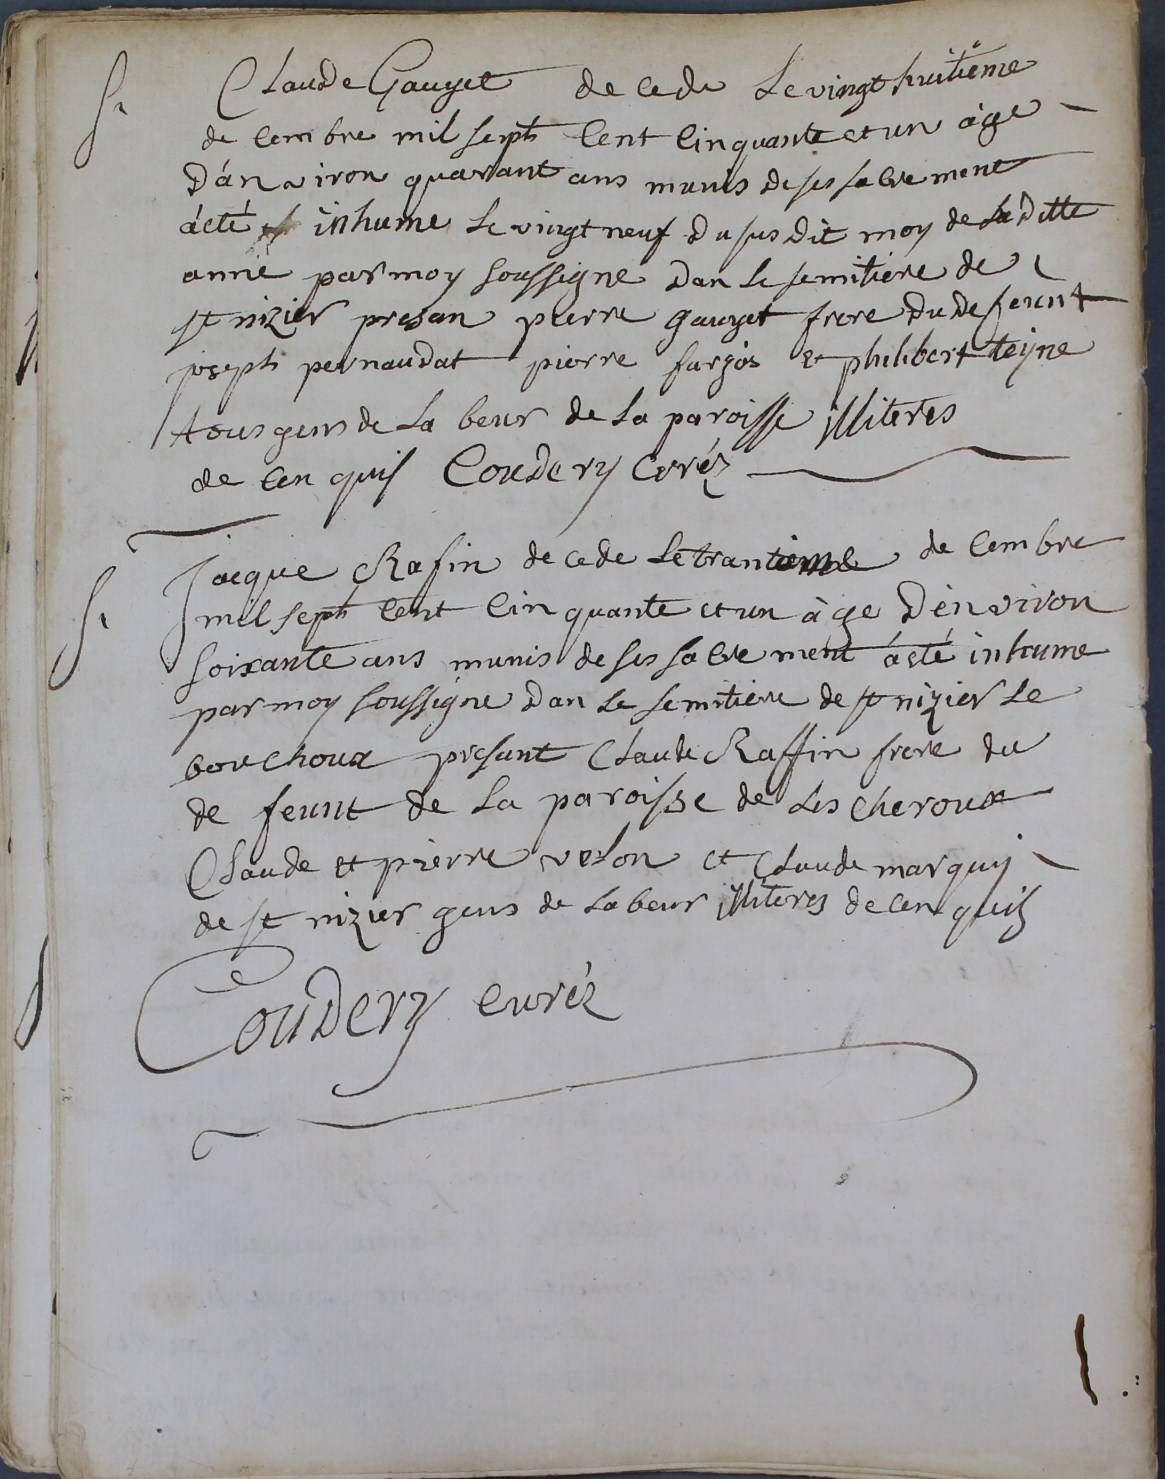 S.
Claude Gauget decede Le vingt huitiéme
decembre mil septs Cent Cinquante et un àge
D'anviron quarant ans munis de ses sacrement
áeté inhume Le vingt neuf Dususdit moy de La Ditte
anné par moy soussigne Dan Le semitiere de
st nizier presan pierre gauget frere Du defeunt
joseph pernaudat pierre farjos et philibert teÿne
tous gens de Labeur de La paroisse illiteres
de Cen quis Coudery Curéz
S.
jacque Rafin decede Le trantieme decembre
mil septs Cent Cinquante et un àge D'environ
soixante ans munis de ses sacrement áeté inhume
par moy soussigne Dan Le semitiere de st nizier Le
bouchoux presant Claude Raffin frere du
defeunt de La paroisse de Les cheroux
Claude et pierre velon et Claude marquis
de st nizier gens de Labeur illiteres de Cen quis
Coudery Curéz